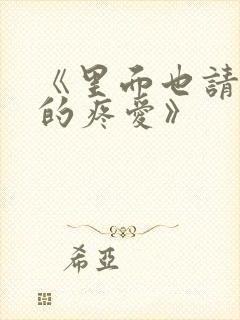 《里而也請
的疼愛》
希亞